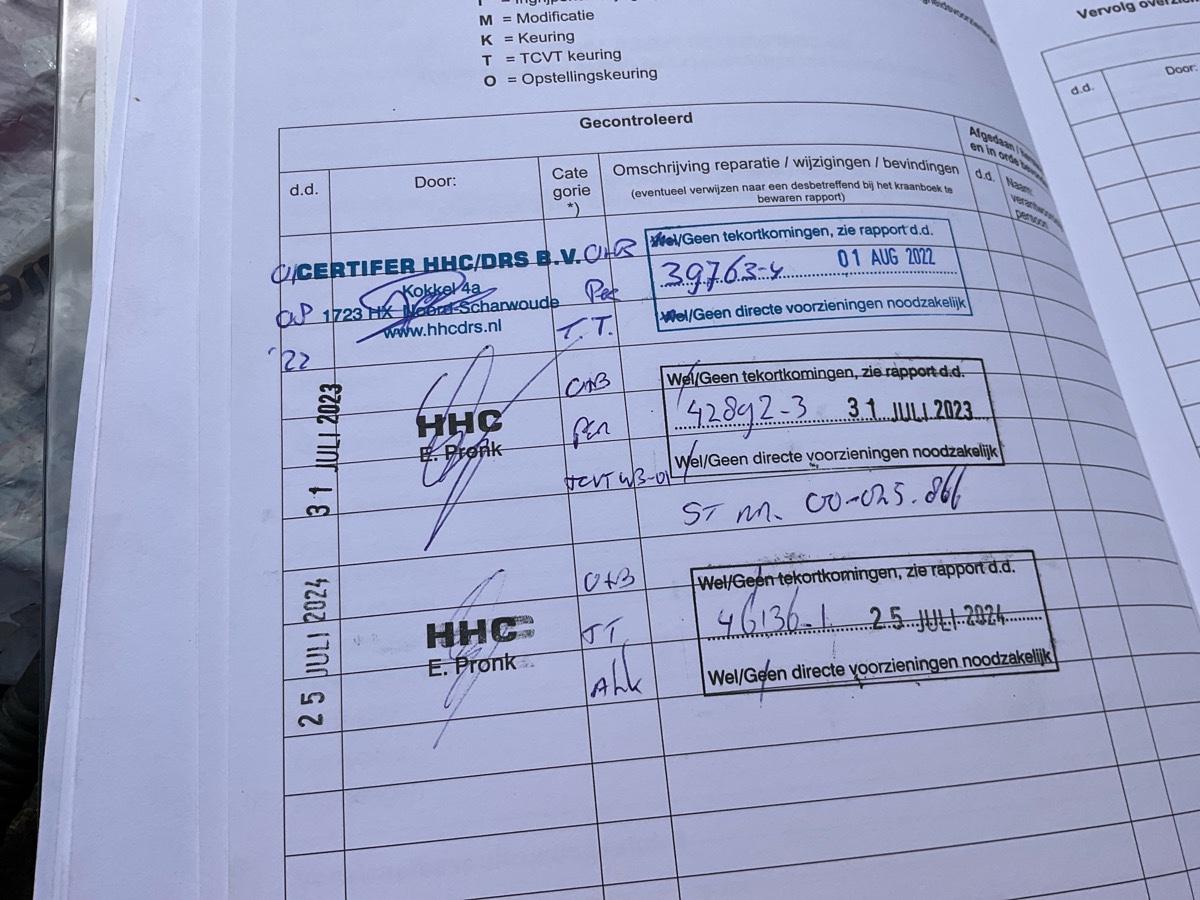 M = Modificatie
K = Keuring
T = TCVT keuring
O = Opstellingskeuring
Vervolg
Gecontroleerd
Afgedaan /
en in orde
d.d.
Door:
Cate
gorie
*)
Omschrijving reparatie / wijzigingen / bevindingen
(eventueel verwijzen naar een desbetreffend bij het kraanboek te
bewaren rapport)
d.d.
Naam
persoon
d.d.
Door:
CERTIFER HHC/DRS B.V.
Kokkel 4a
1723 HX Noord-Scharwoude
www.hhcdrs.nl
'22
T.T.
Wel/Geen tekortkomingen, zie rapport d.d.
39763-4 01 AUG 2022
Wel/Geen directe voorzieningen noodzakelijk
31 JULI 2023
HHC
E. Pronk
TCVT W3-01
Wel/Geen tekortkomingen, zie rapport d.d.
42892-3 31 JULI 2023
Wel/Geen directe voorzieningen noodzakelijk
ST nr. 00-025.866
25 JULI 2024
HHC
E. Pronk
Wel/Geen tekortkomingen, zie rapport d.d.
46136-1 25 JULI 2024
Wel/Geen directe voorzieningen noodzakelijk